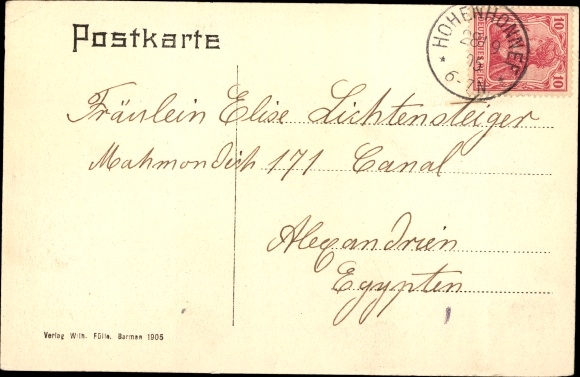 Postkarte
HOHENHONNEF
6-7N
10 10
Fräulein Elise Lichtensteiger
171 Canal
Alexandrien
Egypten
Verlag Wilh. Fülle, Barmen 1905